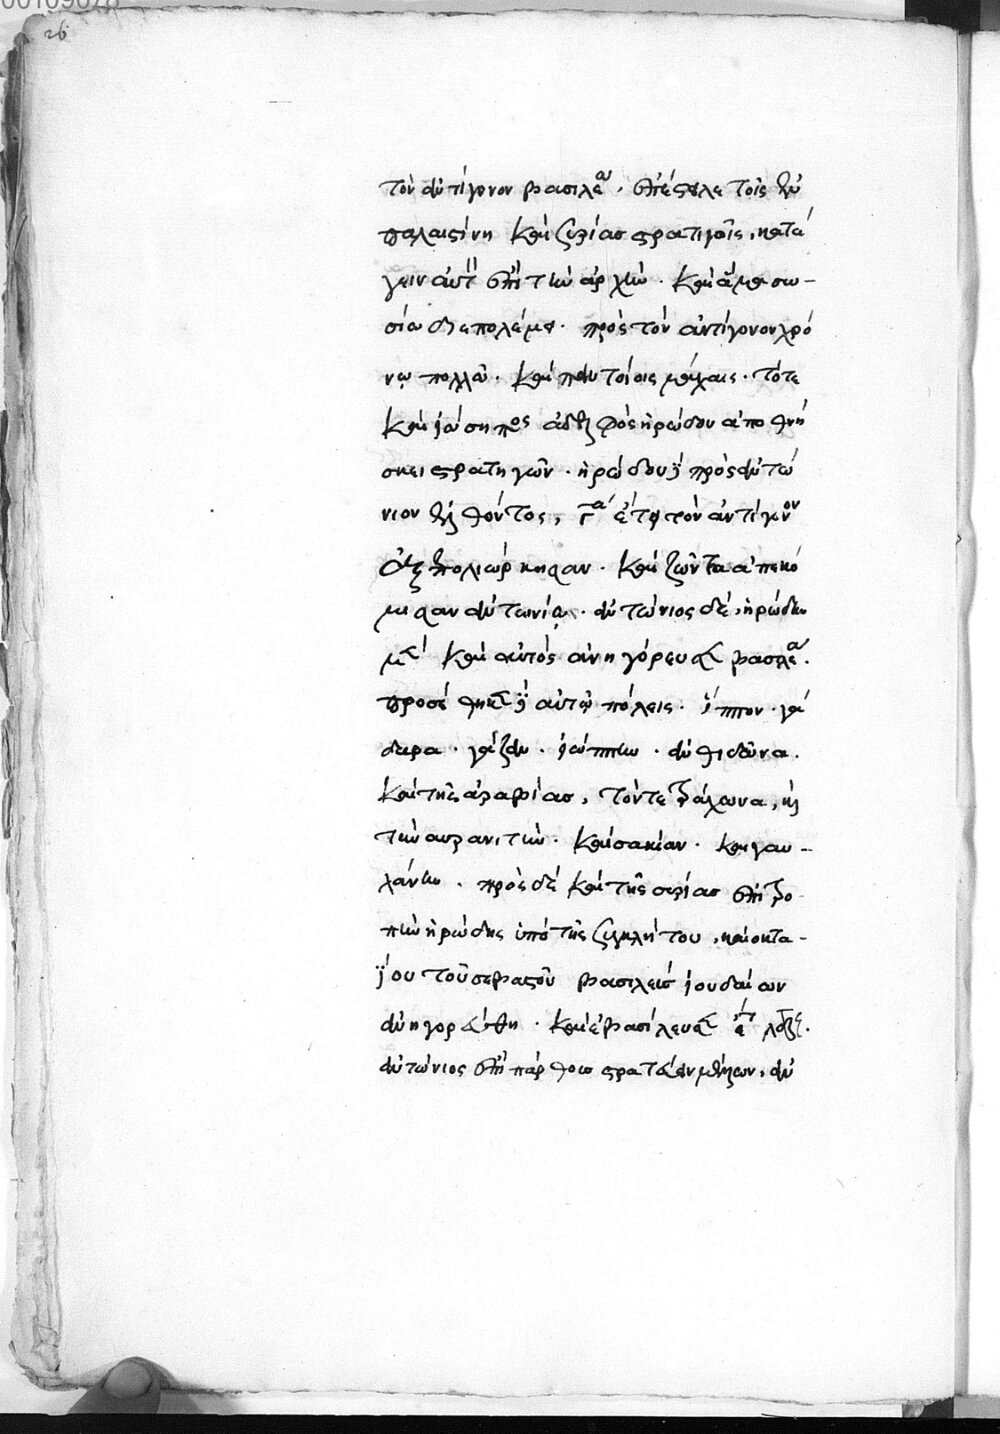 00109078
26
τὸν ἀντίγονον βασιλέα. ἐπέστειλε τοῖς ἐν
παλαιστίνη καὶ συρίας στρατηγοῖς, κατά
γειν αὐτὸν ἐπὶ τὴν ἀρχήν. καὶ ἅμα σω-
σίω διεπολέμει. πρὸς τὸν ἀντίγονον χρό
νω πολλῶ. καὶ παντοίοις μάχαις. τότε
καὶ ἰώσηπος ἀδελφὸς ἡρώδου ἀποθνή
σκει στρατηγῶν. ἡρώδου δὲ πρὸς ἀντώ
νιον ἐλθόντος, γω ἔτει τὸν ἀντίγονον
ἐξεπολιόρκησαν. καὶ ζῶντα ἀπεκό
μισαν ἀντωνίω. ἀντώνιος δὲ, ἡρώδην
καὶ αὐτὸς ἀνηγόρευσε βασιλέα.
προσέθηκε δὲ αὐτῶ πόλεις. ἵππον. γά
δαρα. γάζαν. ἰόππην. ἀνθηδόνα.
καὶ τῆς ἀραβίας, τόν τε τράχωνα, καὶ
τὴν αυρανίτην. καὶ σακίαν. καὶ γαυ-
λάνην. πρὸς δὲ καὶ τῆς συρίας ἐπιτρο
πὴν ἡρώδης ὑπὸ τῆς συγκλήτου, καὶ οκτα-
ΐου τοῦ σεβαστοῦ βασιλεὺς ἰουδαίων
ἀνηγορεύθη. καὶ ἐβασίλευσεν ἔτη λδ.
ἀντώνιος ἐπὶ πάρθους στρατεύειν μέλλων, ἀν